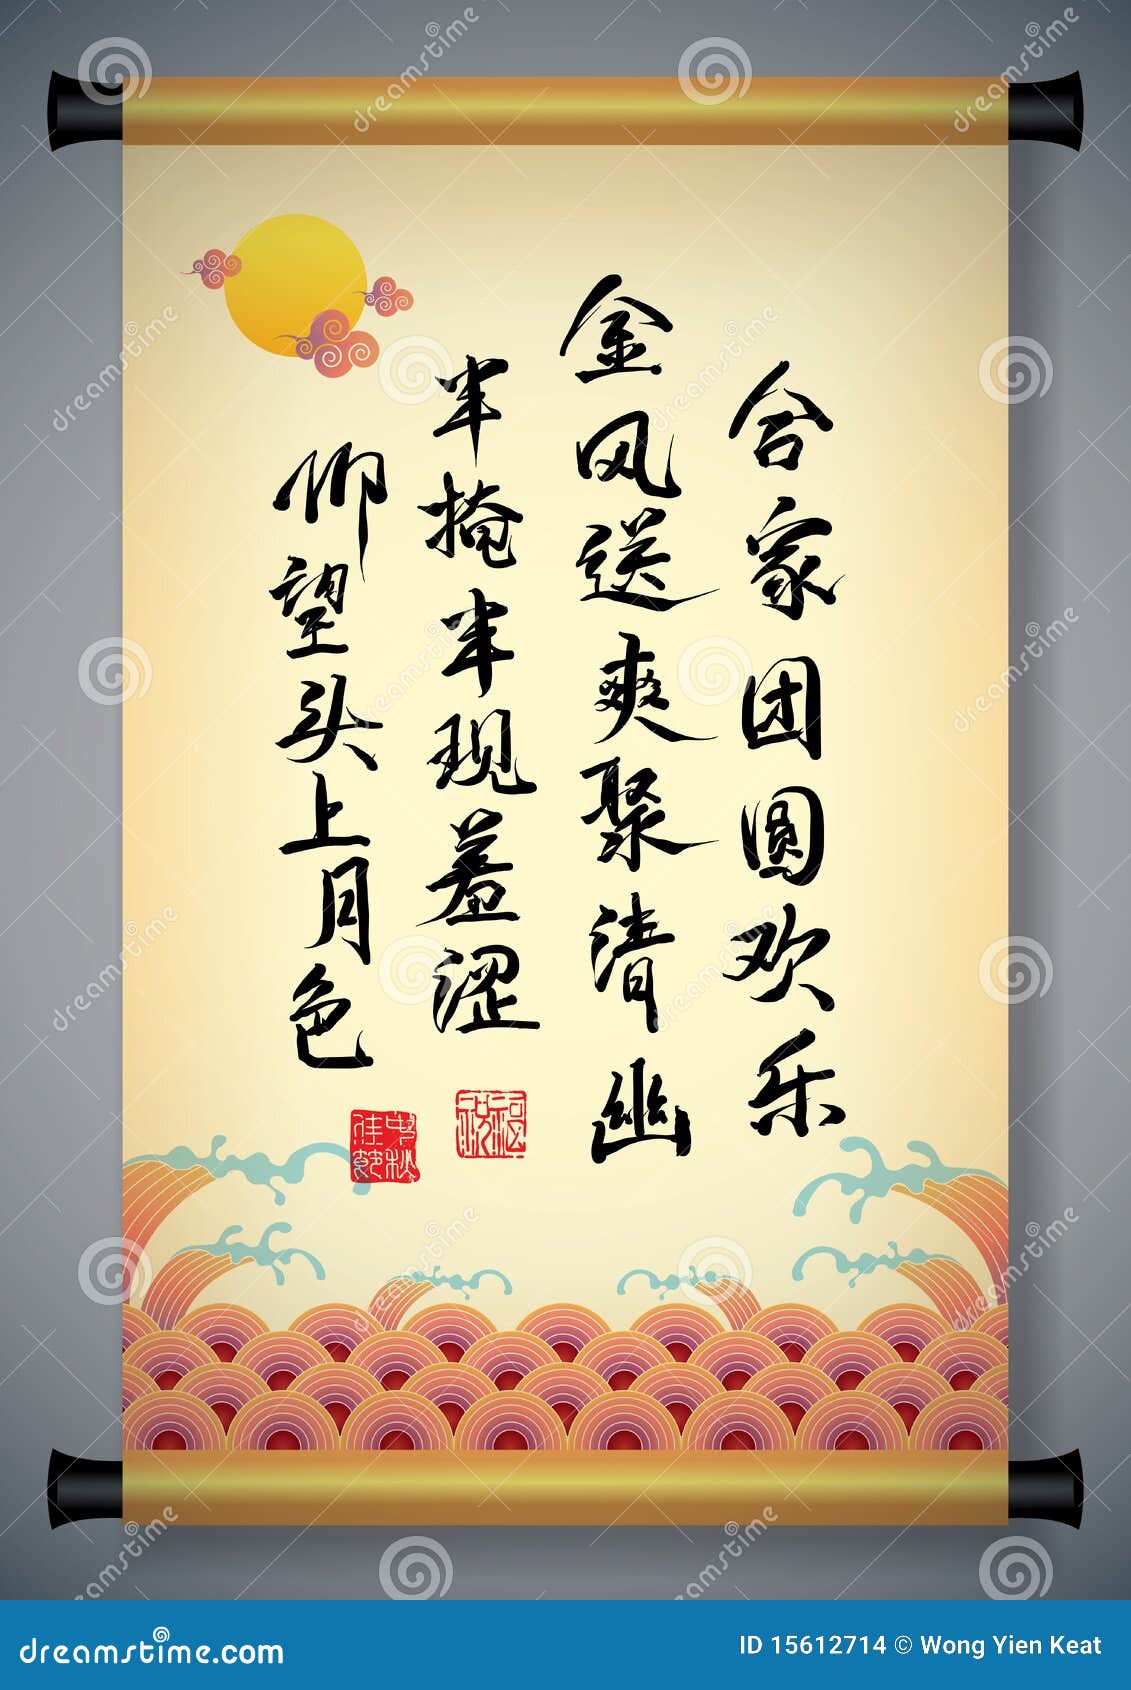 合家团圆欢乐
金风送爽聚清幽
半掩半现羞涩
仰望头上月色
祝福
中秋佳节
dreamstime.com
ID 15612714 © Wong Yien Keat